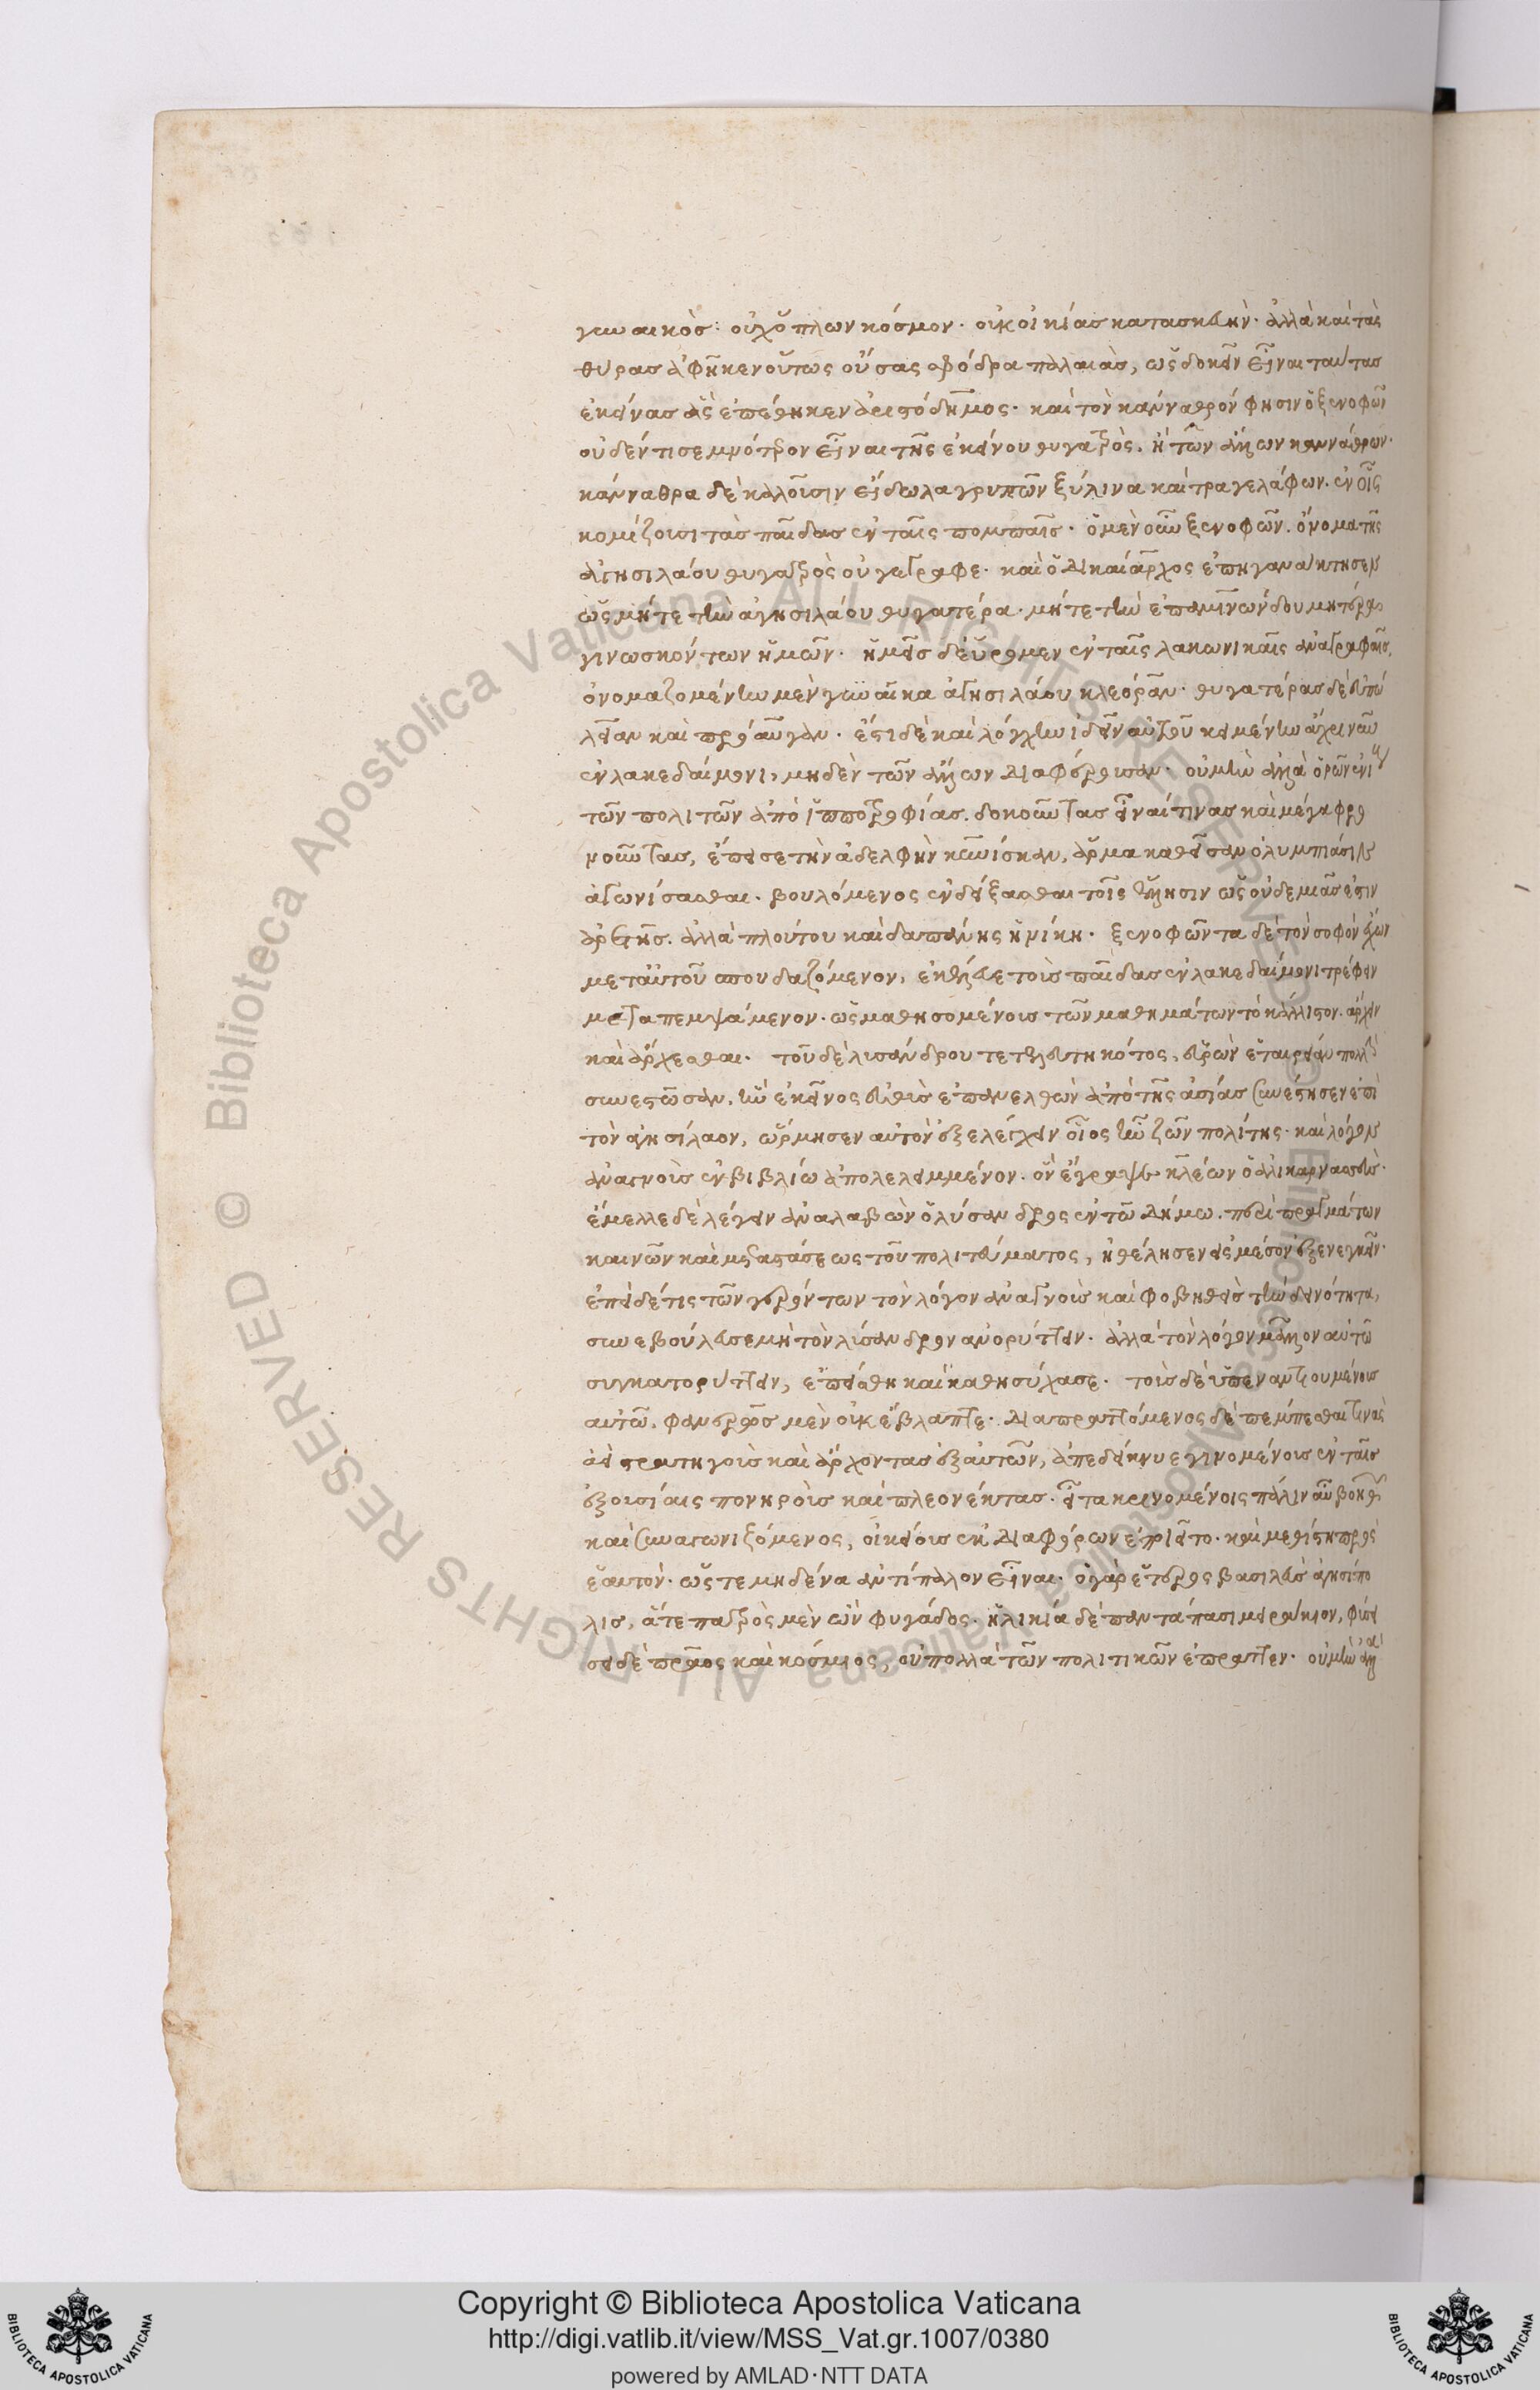 γυναικὸς· οὐχ ὅπλων κόσμον· οὐκ οἰκίας κατασκευὴν· ἀλλὰ καὶ τὰς
θύρας ἀφῆκεν οὕτως οὔσας σφόδρα παλαιὰς, ὡς δοκεῖν εἶναι ταύτας
ἐκείνας ἃς ἐπέθηκεν ἀριστόδημος· καὶ τὸν κάνναθρόν φησιν ὁ ξενοφῶν
οὐδέν τι σεμνότερον εἶναι τῆς ἐκείνου θυγατρὸς. ἢ τῶν ἄλλων καννάθρων·
κάνναθρα δὲ καλοῦσιν εἴδωλα γρυπῶν ξύλινα καὶ τραγελάφων. ἐν οἷς
κομίζουσι τὰς παῖδας ἐν ταῖς πομπαῖς· ὁ μὲν οὖν ξενοφῶν. ὄνομα τῆς
ἀγησιλάου θυγατρὸς οὐ γέγραφε· καὶ ὁ δικαίαρχος ἐπηγανάκτησεν
ὡς μήτε τὴν ἀγησιλάου θυγατέρα· μήτε τὴν ἐπαμινώνδου μητέρα
γινωσκόντων ἡμῶν· ἡμεῖς δὲ εὕρομεν ἐν ταῖς λακωνικαῖς ἀναγραφαῖς,
ὀνομαζομένην μὲν γυναῖκα ἀγησιλάου κλεόραν· θυγατέρας δὲ εὐπω
λείαν καὶ πρόαυγαν· ἔστι δὲ καὶ λόγχην ἰδεῖν αὐτοῦ κειμένην ἄχρι νῦν
ἐν λακεδαίμονι, μηδὲν τῶν ἄλλων διαφέρουσαν· οὐ μὴν ἀλλὰ ὁρῶν ἐνίους
τῶν πολιτῶν ἀπὸ ἱπποτροφίας. δοκοῦντας εἶναί τινας καὶ μέγα φρο
νοῦντας, ἔπεισε τὴν ἀδελφὴν κυνίσκαν, ἅρμα καθεῖσαν ὀλυμπιάσιν
ἀγωνίσασθαι. βουλόμενος ἐνδείξασθαι τοῖς ἕλλησιν ὡς οὐδεμιᾶς ἐστιν
ἀρετῆς. ἀλλὰ πλούτου καὶ δαπάνης ἡ νίκη· ξενοφῶντα δὲ τὸν σοφὸν ἔχων
μεταὐτοῦ σπουδαζόμενον, ἐκέλευε τοὺς παῖδας ἐν λακεδαίμονι τρέφειν
μεταπεμψάμενον· ὡς μαθησομένοις τῶν μαθημάτων τὸ κάλλιστον. ἄρχειν
καὶ ἄρχεσθαι. τοῦ δὲ λυσάνδρου τετελευτηκότος, εὑρὼν ἑταιρείαν πολλὴν
συνεστῶσαν, ἣν ἐκεῖνος εὐθὺς ἐπανελθὼν ἀπὸ τῆς ἀσίας συνέστησεν ἐπὶ
τὸν ἀγησίλαον, ὥρμησεν αὐτὸν ἐξελέγχειν οἷος ἦν ζῶν πολίτης· καὶ λόγον
ἀναγνοὺς ἐν βιβλίω ἀπολελειμμένον. ὃν ἔγραψε κλέων ὁ ἁλικαρνασσεὺς·
ἔμελλε δὲ λέγειν ἀναλαβὼν ὁ λύσανδρος ἐν τῶ δήμω. περὶ πραγμάτων
καινῶν καὶ μεταστάσεως τοῦ πολιτεύματος, ἠθέλησεν εἰς μέσον ἐξενεγκεῖν·
ἐπεὶ δέ τις τῶν γερόντων τὸν λόγον ἀναγνοὺς καὶ φοβηθεὶς τὴν δεινότητα,
συνεβούλευσε μὴ τὸν λύσανδρον ἀνορύττειν· ἀλλὰ τὸν λόγον μᾶλλον αὐτῶ
συγκατορύττειν, ἐπείσθη καὶ καθησύχασε. τοὺς δὲ ὑπεναντιουμένους
αὐτῶ. φανερῶς μὲν οὐκ ἔβλαπτε· διαπραττόμενος δὲ πέμπεσθαι τινὰς
ἀεὶ στρατηγοὺς καὶ ἄρχοντας ἐξ αὐτῶν, ἀπεδείκνυε γινομένους ἐν ταῖς
ἐξουσίαις πονηροὺς καὶ πλεονέκτας. εἶτα κρινομένοις πάλιν αὖ βοηθῶν
καὶ συναγωνιζόμενος, οἰκείους ἐκ διαφόρων ἐποιεῖτο· καὶ μεθίστη πρὸς
ἑαυτὸν· ὥστε μηδένα ἀντίπαλον εἶναι. ὁ γὰρ ἕτερος βασιλεὺς ἀγησίπο
λις, ἅτε πατρὸς μὲν ὢν φυγάδος· ἡλικία δὲ παντάπασι μειράκιον, φύσει
δὲ πρᾶος καὶ κόσμιος, οὐ πολλὰ τῶν πολιτικῶν ἔπραττεν· οὐ μὴν ἀλλὰ